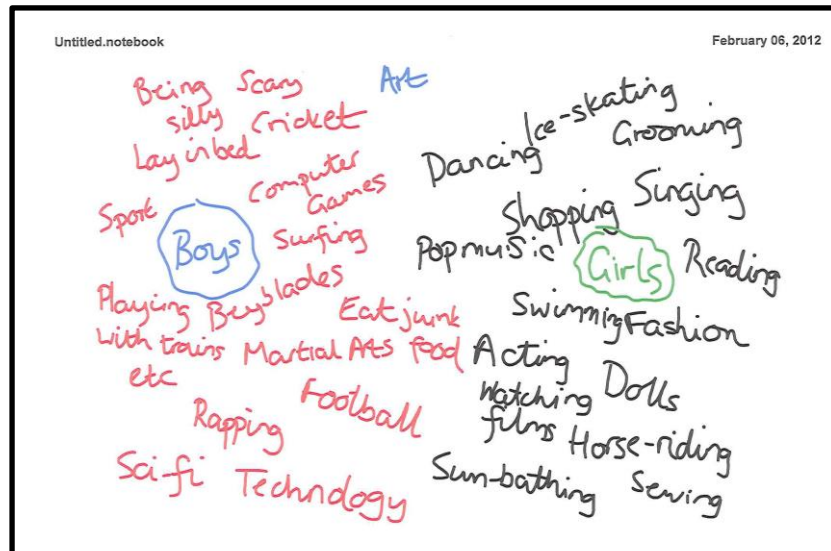 Untitled.notebook
February 06, 2012
Being Scary
silly
Cricket
Lay in bed
Computer
Games
Sport
Boys
Surfing
Playing
with trains
etc
Beyblades
Eat junk
food
Martial Arts
Rapping
Football
Sci-fi
Technology
Art
Ice-skating
Grooming
Dancing
Shopping
Singing
Pop music
Girls
Reading
Swimming
Fashion
Acting
Watching
films
Dolls
Horse-riding
Sun-bathing
Sewing